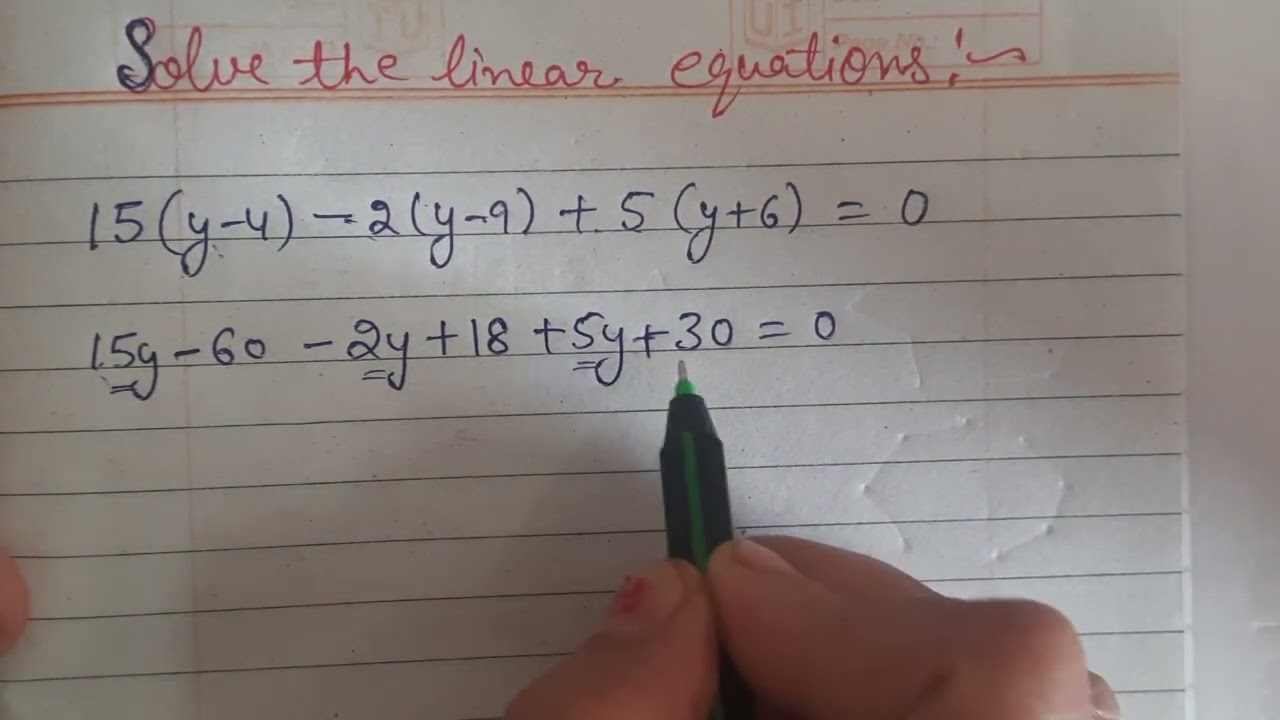 Solve the linear equations:~
15(y-4) - 2(y-9) + 5(y+6) = 0
15y - 60 - 2y + 18 + 5y + 30 = 0